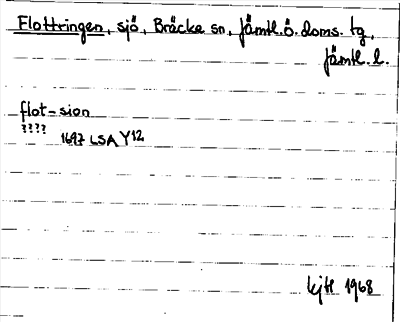 Flottringen, sjö, Bräcke sn, Jämtl. ö. doms. tg,
Jämtl. l.
flot-sion
???? 1697 LSA Y12
1968